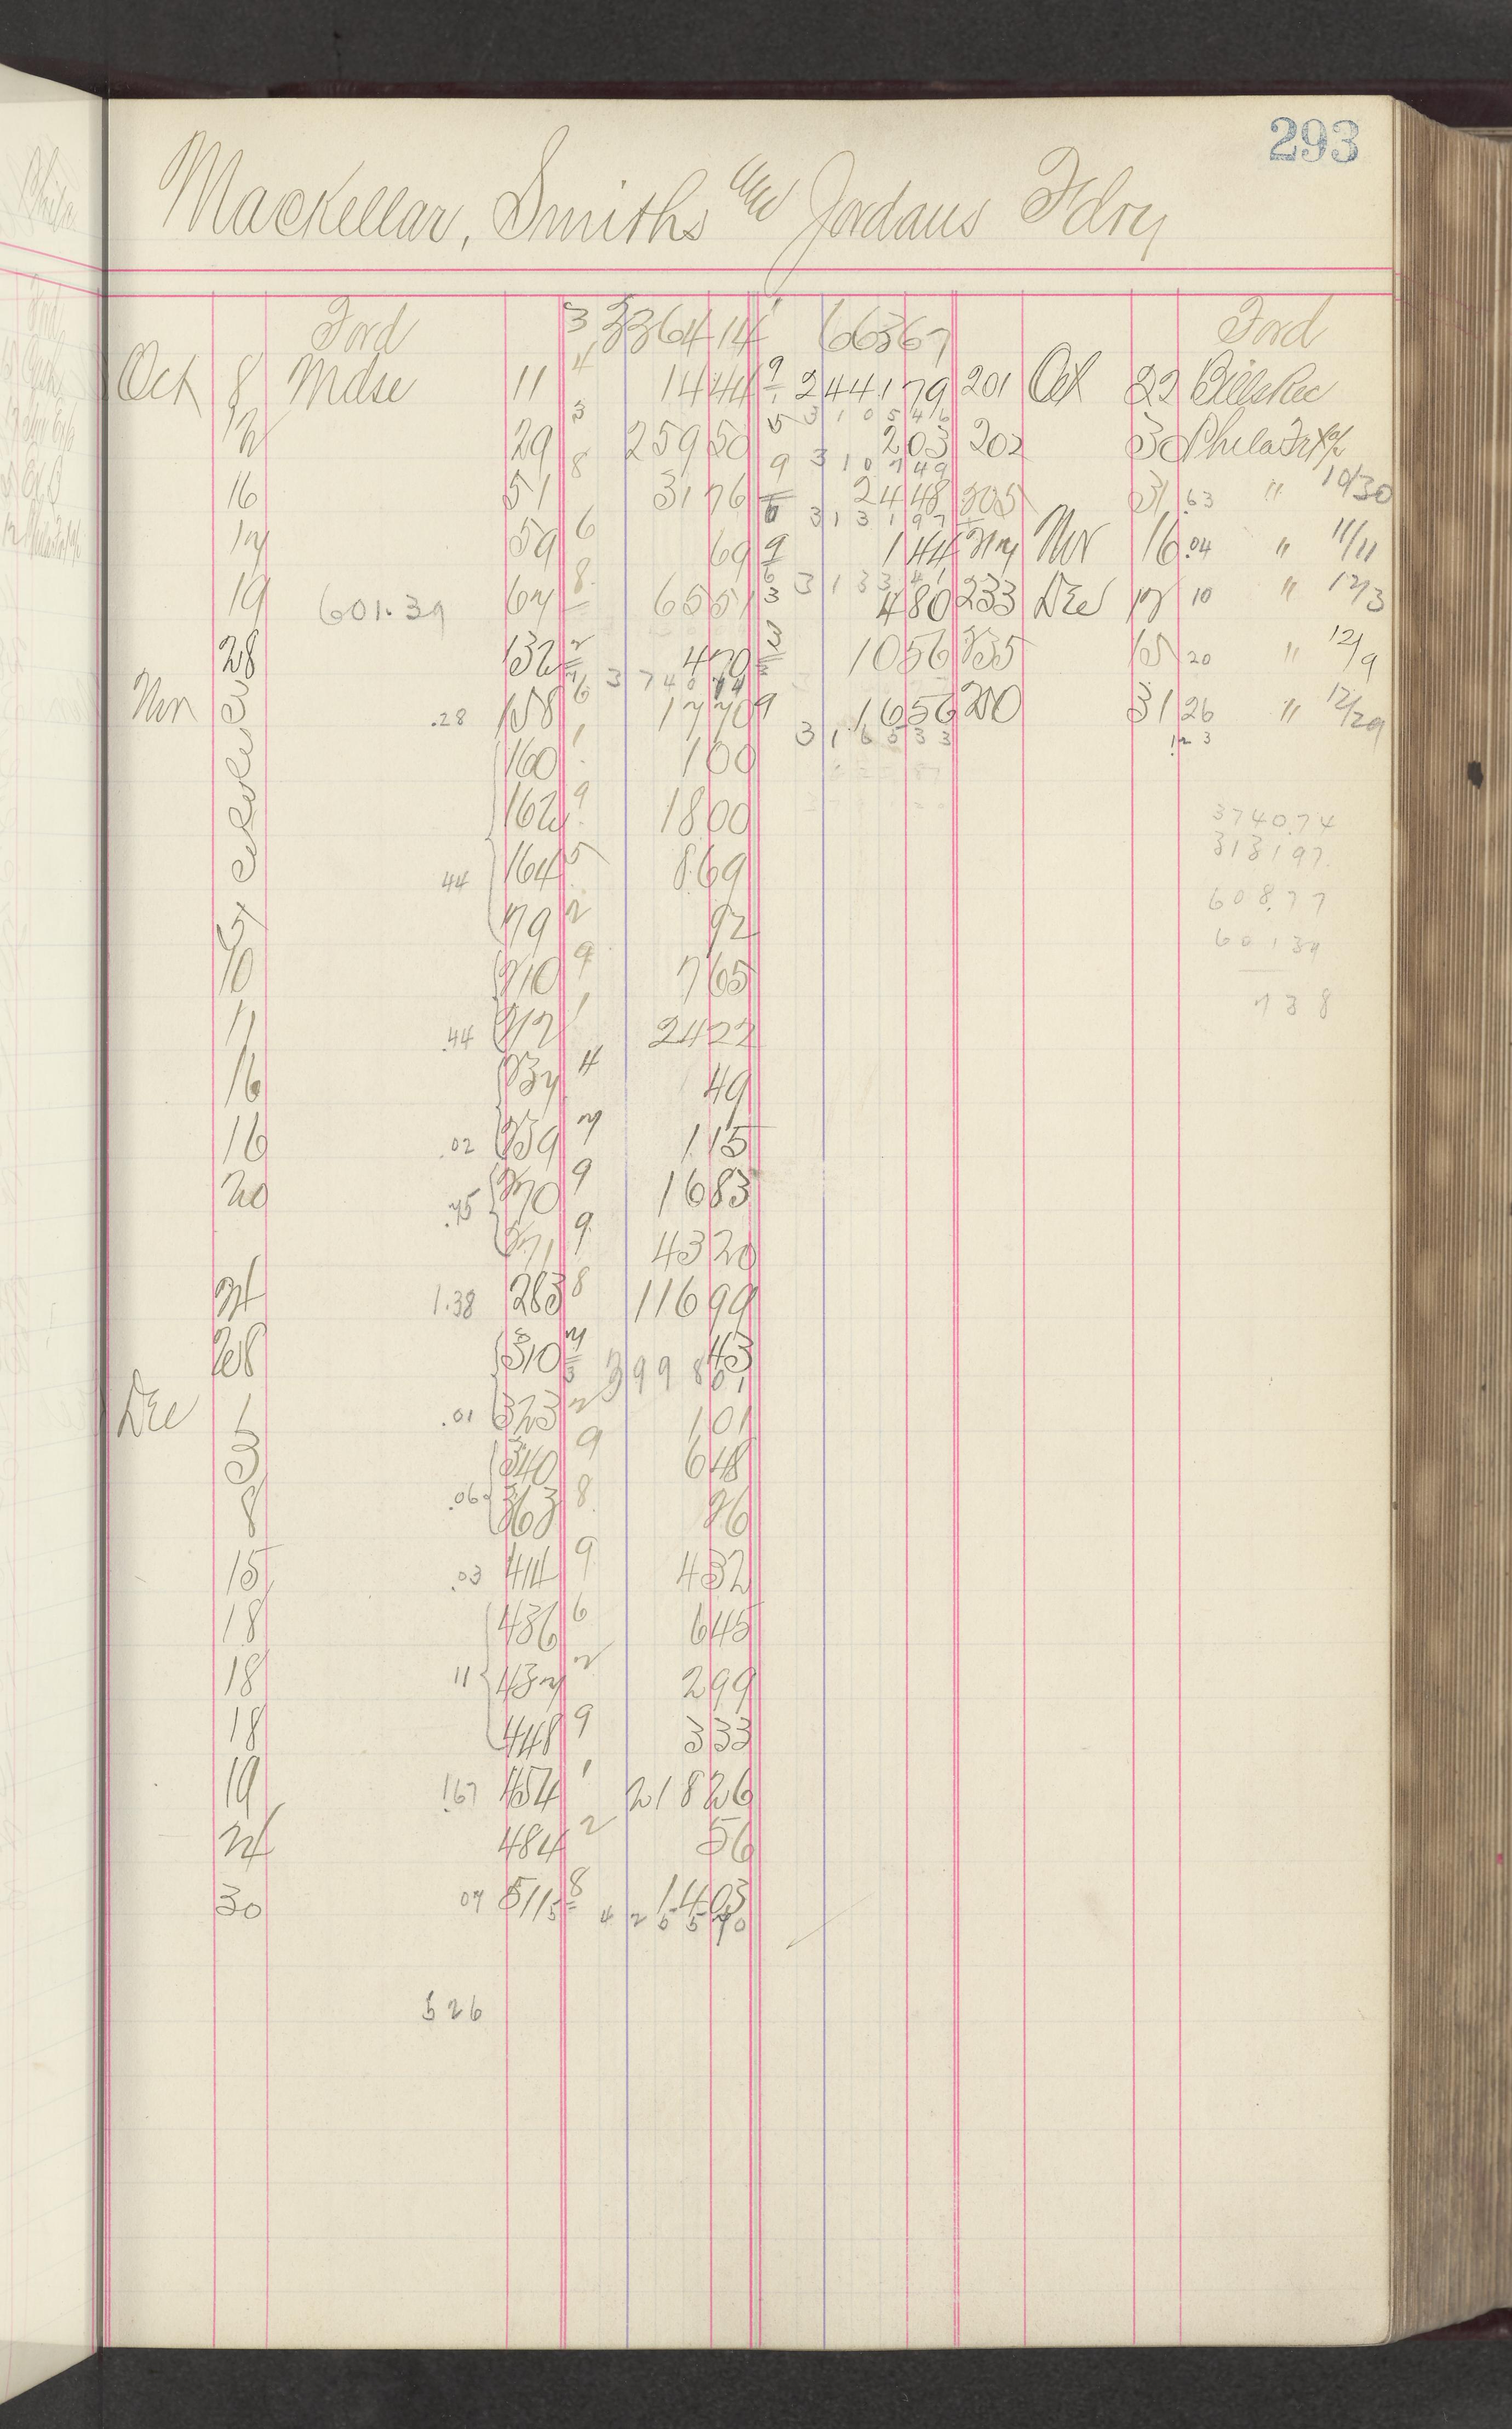 293
Mackellar, Smiths and Jordans Fdry
Ford 3 3364 14 663 67 Ford
Oct 8 Mdse 11 4 14 44 9 2441 79 201 Oct 22 Bills Rec
3105 46
12 29 3 259 50 5 2 03 202 30 Phila Frt
3107 49
16 51 8 31 76 9 24 48 205 31 .63 " 10/30
3131 97
17 59 6 69 9 1 44 217 Nov 16 .04 " 11/11
3133 41
19 601.39 67 8 65 51 3 4 80 233 Dec 7 10 " 12/3
28 132 2 4 70 3 10 56 235 15 20 " 12/9
3740 74
Nov 2 .28 158 6 17 70 9 16 56 250 31 26 " 12/29
3165 33 123
2 160 1 1 00
2 162 9 18 00 3740.74
2 44 164 5 8 69 3131 97
5 179 2 92 608.77
10 210 9 7 65 601 39
11 .44 212 1 24 22 7 38
16 237 4 49
16 .02 239 7 1 15
20 .75 270 9 16 83
271 9 43 20
24 1.38 283 8 116 99
28 310 7 43
3998 01
Dec 1 .01 323 2 1 01
3 340 9 6 48
8 .06 363 8 26
15 .03 414 9 4 32
18 436 6 6 45
18 11 437 2 2 99
18 448 9 3 33
19 1.67 454 1 218 26
24 484 2 56
30 07 511 8 14 03
4255 70
526